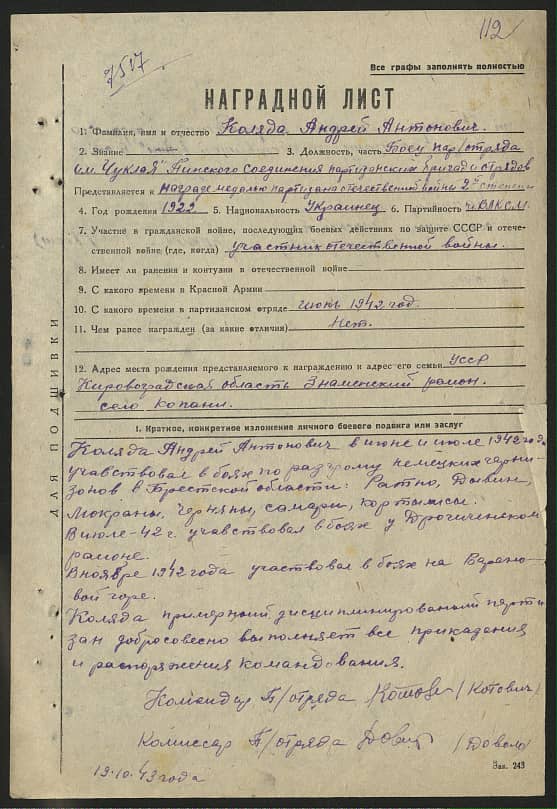 112
7517
Все графы заполнять полностью
НАГРАДНОЙ ЛИСТ
1. Фамилия, имя и отчество Коляда Андрей Антонович.
2. Звание 3. Должность, часть Боец пар/отряда
им. Чуклая" Пинского Соединения партизанских бригад и отрядов
Представляется к награде медалью партизана отечественной войны 2й степени
4. Год рождения 1922 5. Национальность Украинец 6. Партийность чл ВЛКСМ
7. Участие в гражданской войне, последующих боевых действиях по защите СССР и отече-
ственной войне (где, когда) участник отечественной войны.
8. Имеет ли ранения и контузии в отечественной войне
9. С какого времени в Красной Армии
10. С какого времени в партизанском отряде июнь 1942 год.
11. Чем ранее награжден (за какие отличия) Нет.
12. Адрес места рождения представляемого к награждению и адрес его семьи УССР
Кировоградская область Знаменский район.
село Копани.
ДЛЯ ПОДШИВКИ
I. Краткое, конкретное изложение личного боевого подвига или заслуг
Коляда Андрей Антонович в июне и июле 1942 года
учавствовал в боях по разгрому немецких гарни-
зонов в Брестской области: Ратно, Дывин,
Мокраны, Черняны, Самары, Кортылисы.
В июле-42 г. учавствовал в боях у Дрогиченском
районе.
В ноябре 1942 года участвовал в боях на
вой горе.
Коляда примерный дисциплинированый парти
зан добросовесно выполняет все приказания
и распоряжения командования.
Командир П/отряда (Котович)
Комиссар П/отряда
19.10.43 года
Зак. 243